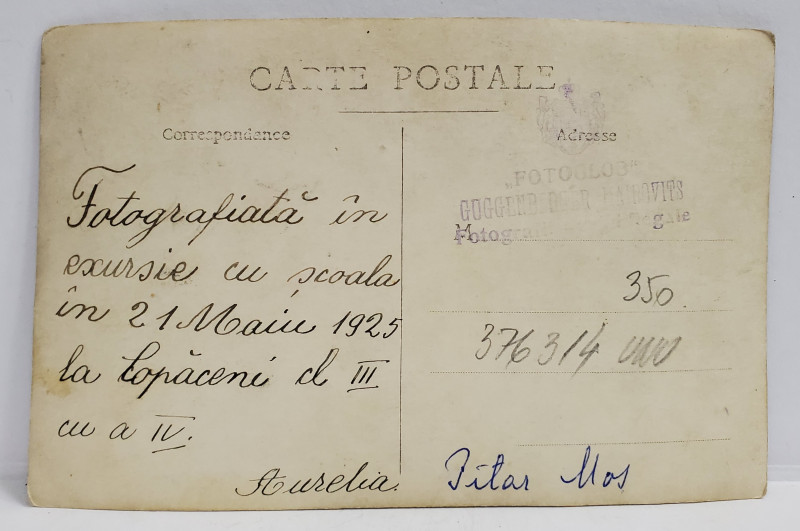 CARTE POSTALE
Correspondance
Adresse
Fotografiată în
excursie cu școala
în 21 Maiu 1925
la Copăceni cl III
cu a IV.
Aurelia.
„FOTOGLOB"
M
Regale
350.
376314
Pitar Mos